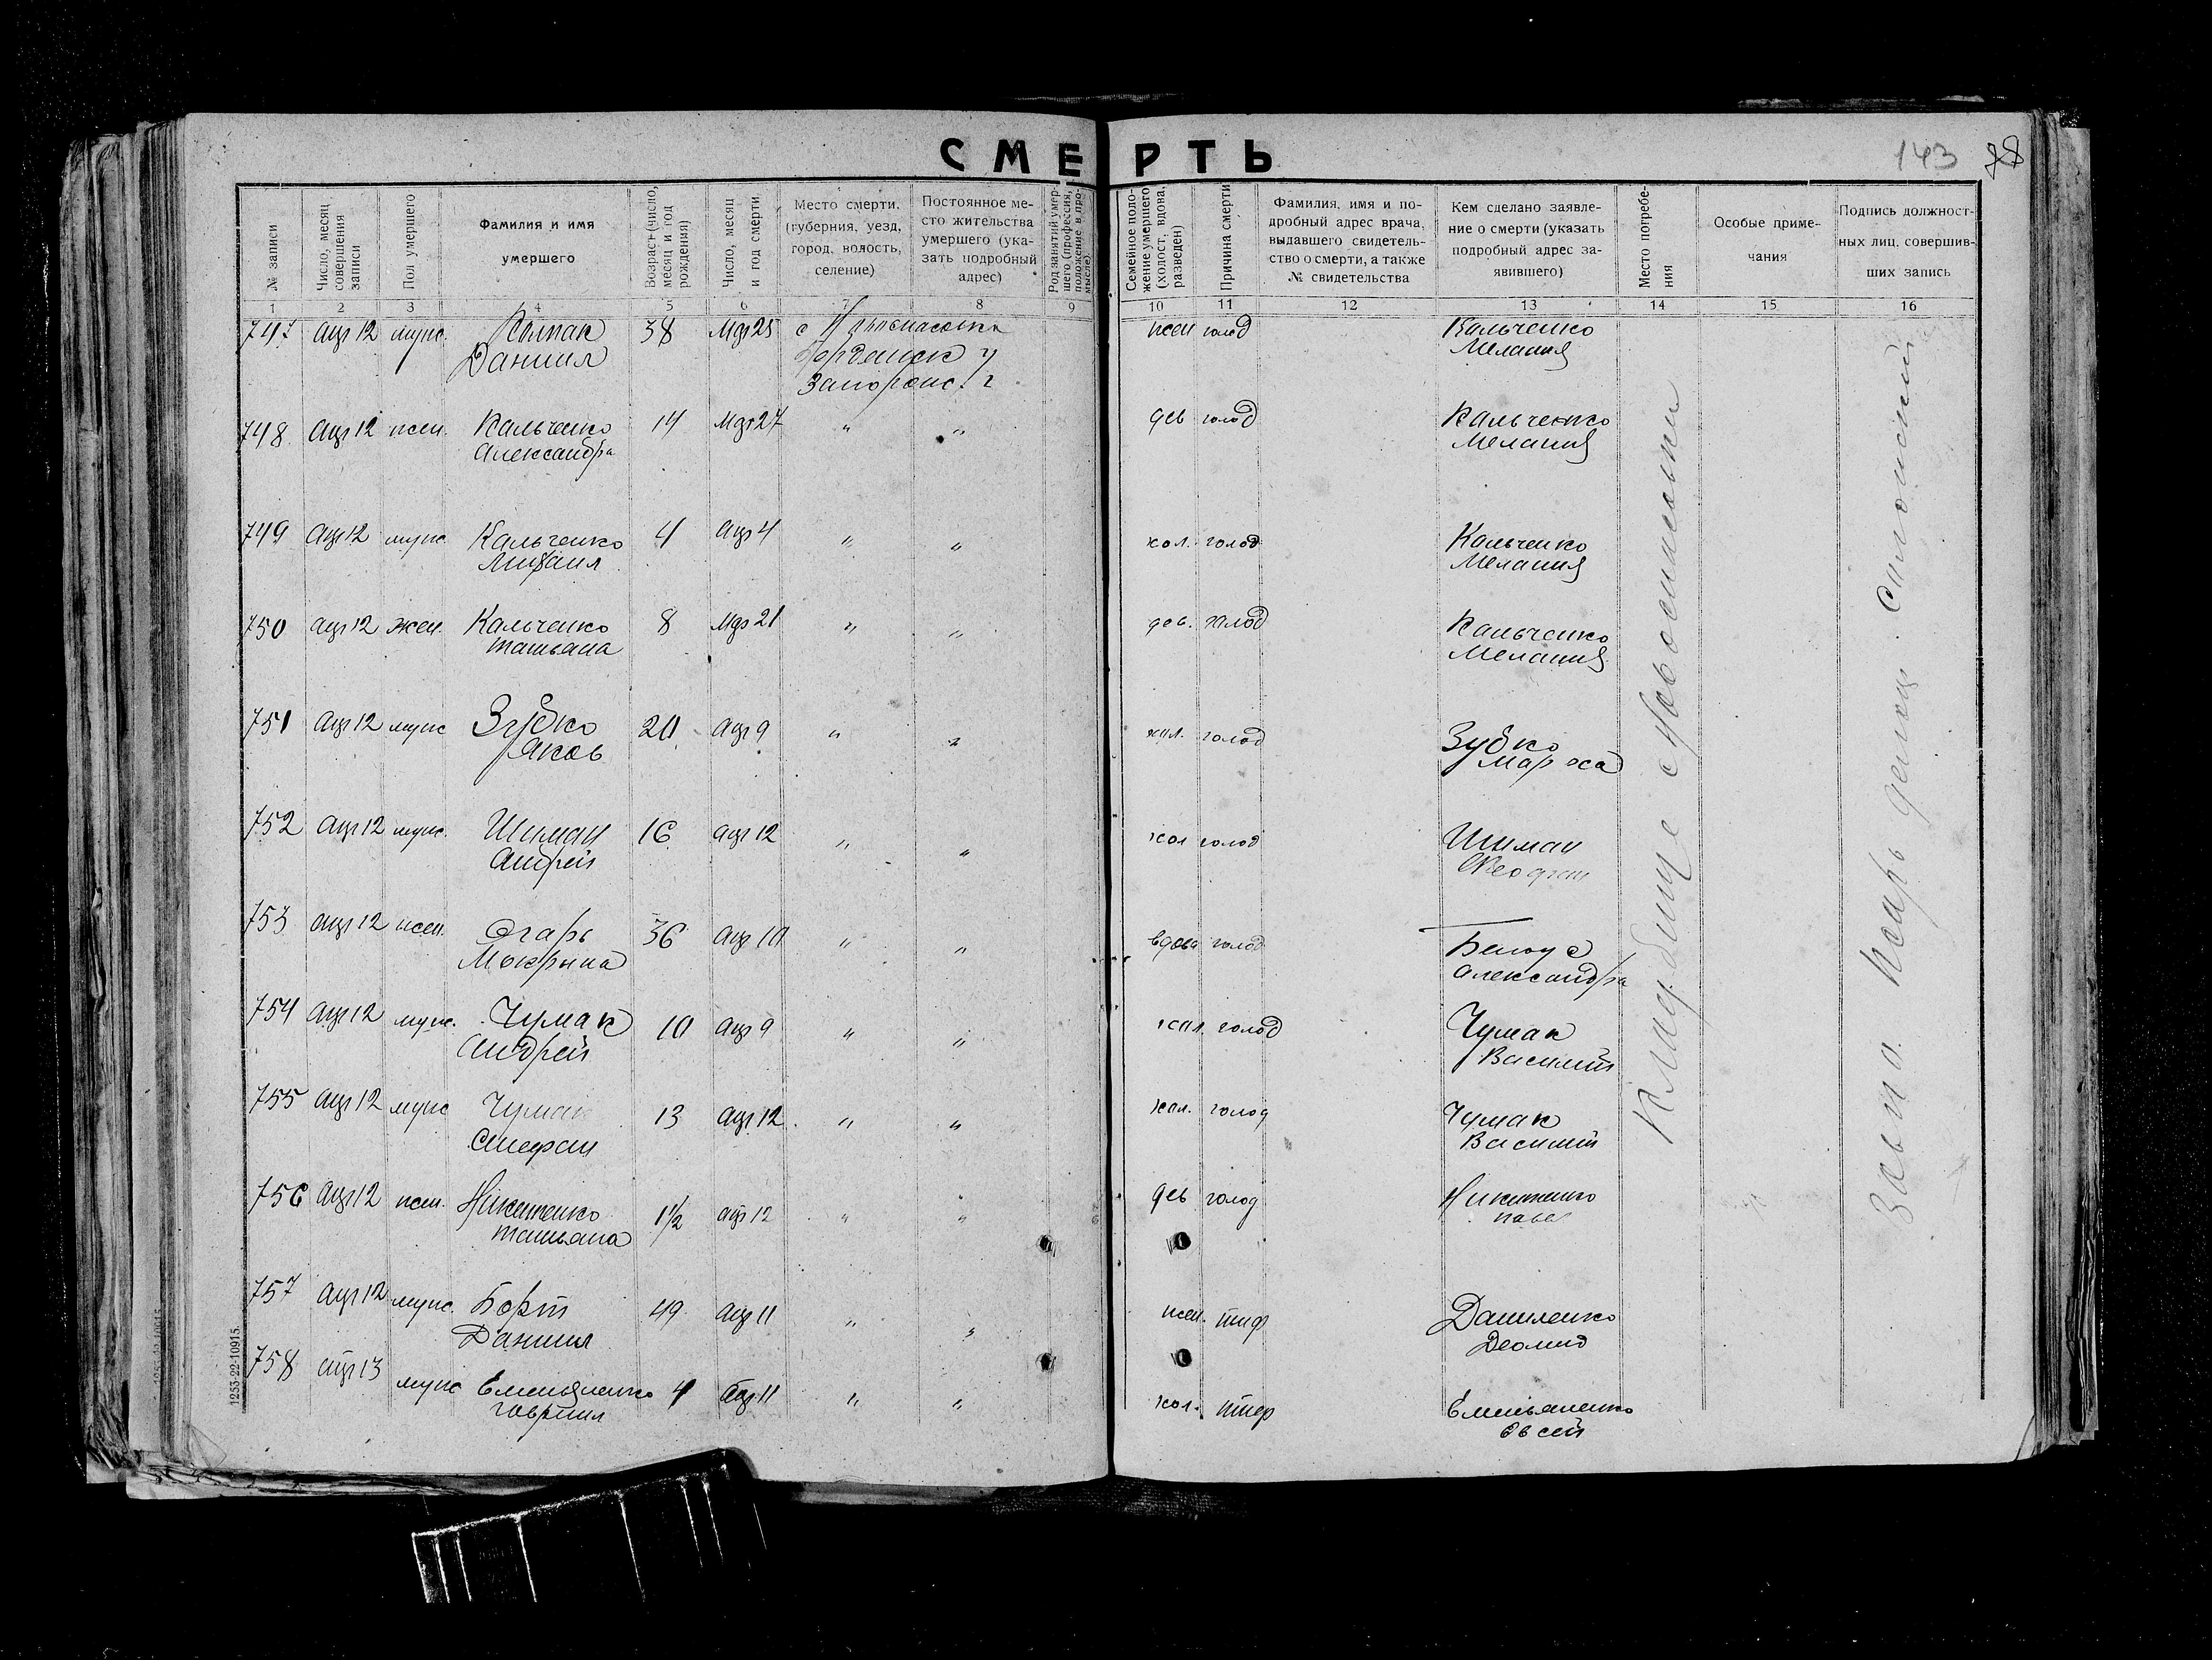 СМЕРТЬ
143 88
№ записи
Число, месяц совершения записи
Пол умершего
Фамилия и имя
умершего
Возраст (число, месяц и год рождения)
Число, месяц и год смерти.
Место смерти.
(губерния, уезд,
город, волость,
селение)
Постоянное ме-
сто жительства
умершего (ука-
зать подробный
адрес)
Род занятий умер-
шего (профессия,
положение в про-
мысле).
Семейное поло-
жение умершего
(холост, вдова,
разведен)
Причина смерти
Фамилия, имя и по-
дробный адрес врача,
выдавшего свидетель-
ство о смерти, а также
№ свидетельства
Кем сделано заявле-
ние о смерти (указать
подробный адрес за-
явившего)
Место погребе-
ния
Особые приме-
чания
Подпись должност-
ных лиц, совершив-
ших запись
1 2 3 4 5 6 7 8 9 10 11 12 13 14 15 16
747 апр 12 муж. Колпак 38 Мар 25 с жен голод Кальченко
Даниил Мелания
Запорож. г
748 апр 12 жен. Кальченко 14 Мар 27 " " дев голод Кальченко
Александра Мелания
749 апр 12 муж. Кальченко 4 апр 4 " " хол. голод Кальченко
Михаил Мелания
750 апр 12 жен. Кальченко 8 Мар 21 " " дев. голод Кальченко
Татьяна Мелания
751 апр 12 муж Зубко 20 апр 9 " " хол. голод Зубко
Яков
752 апр 12 муж. Шиман 16 апр 12 " " хол голод Шиман
Андрей
753 апр 12 жен. Огарь 36 апр 10 " " вдова голод Белоус
Мокрына Александра
754 апр 12 муж. Чумак 10 апр 9 " " хол. голод Чумак
Андрей Василий
755 апр 12 муж Чумак 13 апр 12 " " хол. голод Чумак
Стефан Василий
756 апр 12 жен. Никитенко 1½ апр 12 " " дев голод Никитенко
Татьяна
757 апр 12 муж. Борт 49 апр 11 " " жен. тиф Даниленко
Даниил Деомид
758 апр 13 муж Емельяненко 4 апр 11 " " хол. тиф Емельяненко
Гавриил Овсей
Кладбище с
1253-22-10915.